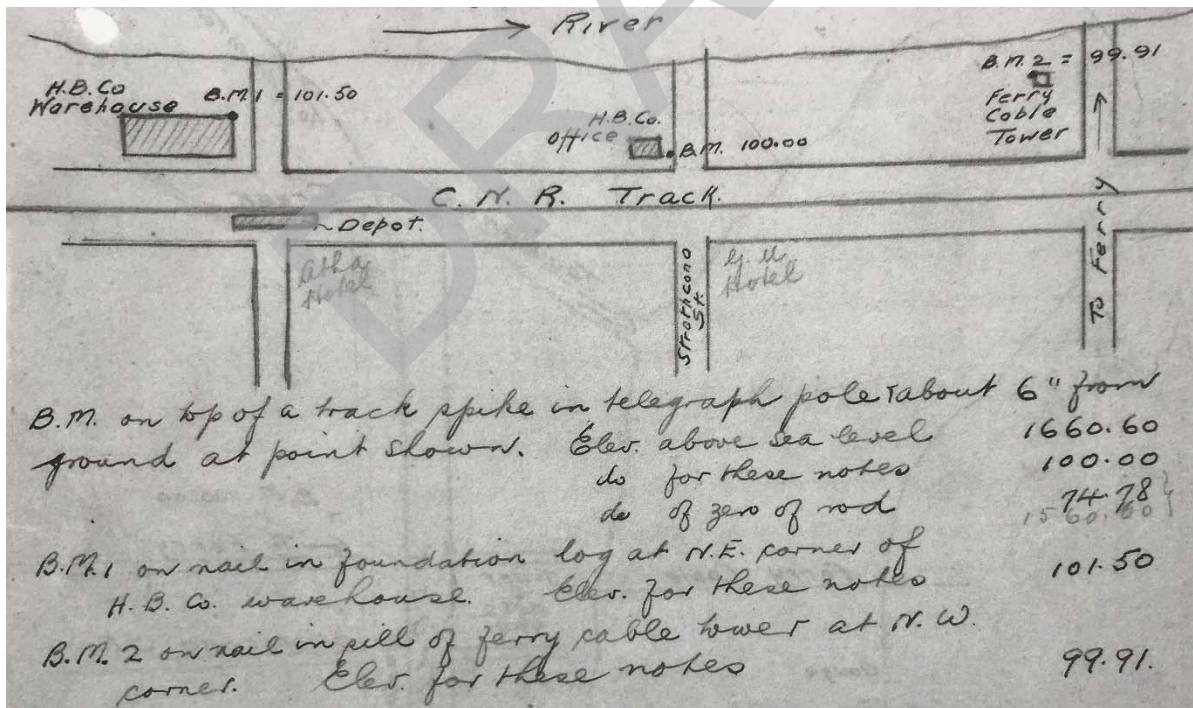 River
B.M. 2 = 99.91
H.B. Co
Warehouse
B.M.1 = 101.50
Ferry
Cable
Tower
H.B. Co.
Office
B.M. 100.00
C. N. R. Track.
Depot.
Atha
Hotel
Hotel
Strathcona
St.
To Ferry
B.M. on top of a track spike in telegraph pole about 6" from
ground at point shown. Elev. above sea level 1660.60
do for these notes 100.00
do of zero of rod 74.78
1560.60
B.M.1 on nail in foundation log at N.E. corner of
H. B. Co. warehouse. Elev. for these notes 101.50
B.M. 2 on nail in sill of ferry cable tower at N. W.
corner. Elev. for these notes 99.91.